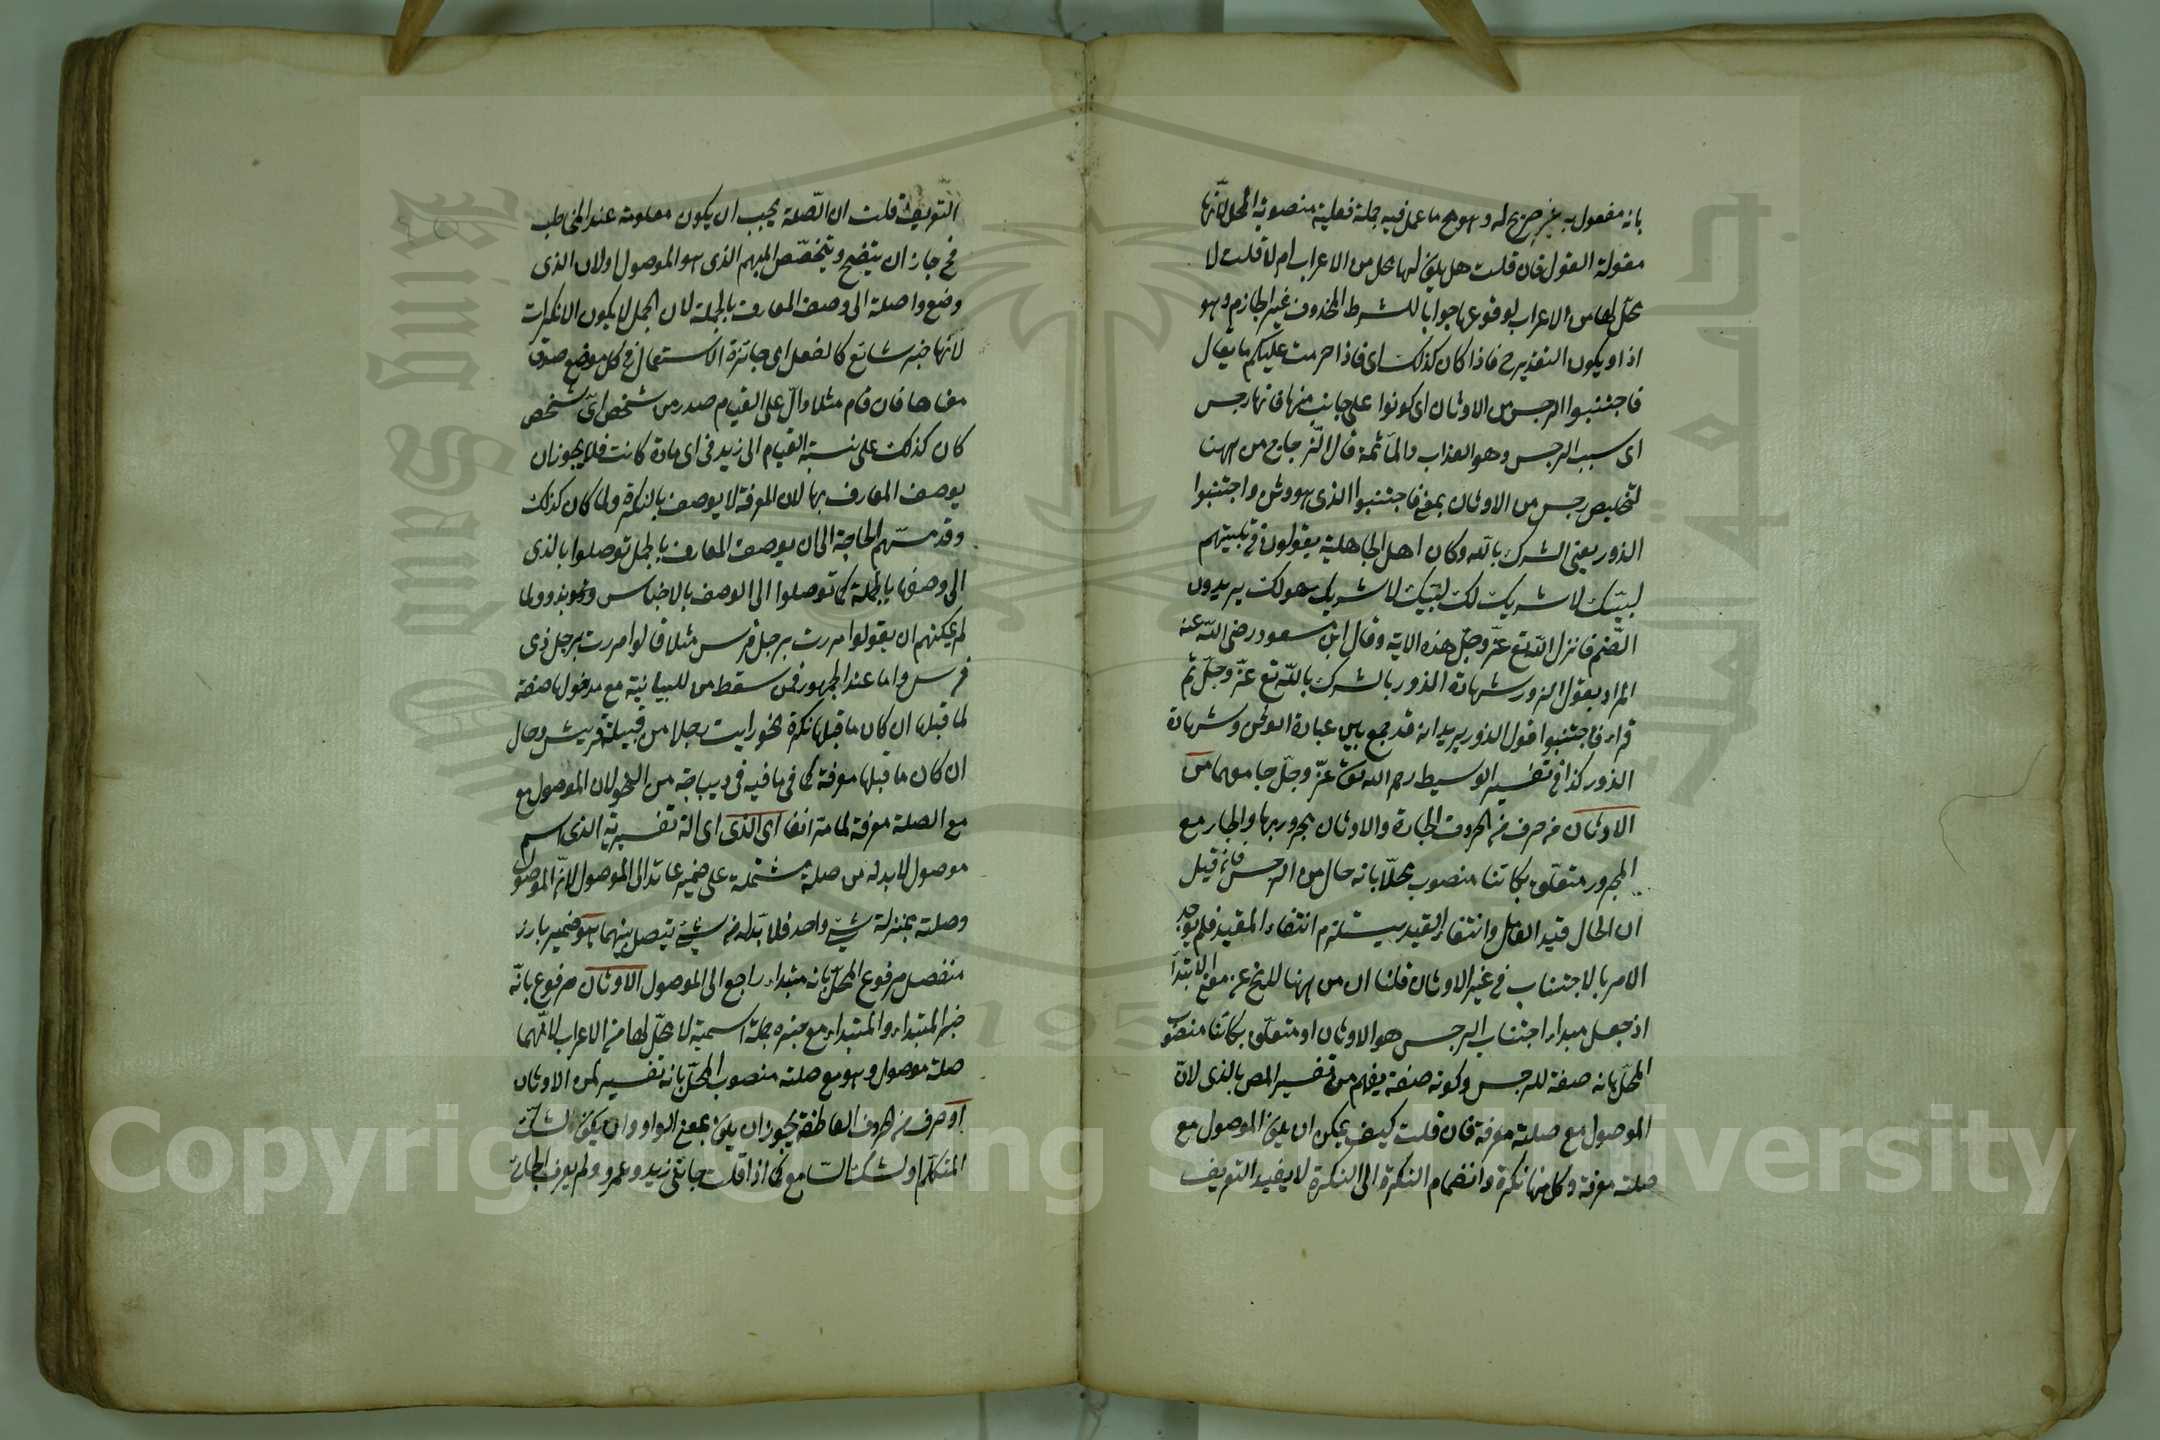 بانه مفعول به غير صريح له وهو مع ما عمل فيه جملة فعلية منصوبة المحل لانها
مقولة القول فان قلت هل يكون لها محل من الاعراب ام لا قلت لا
محل لها من الاعراب لوقوعها جوابا للشرط المحذوف غير الجازم وهو
اذا ويكون التقدير ح فاذا كان كذلك اى فاذا حرمت عليكم ما يقال
فاجتنبوا الرجس من الاوثان اى كونوا على جانب منها فانها رجس
اى سبب الرجس وهو العذاب والمأثمة قال الزجاج من ههنا
لتخليص رجس من الاوثان بمعنى فاجتنبوا الذى هو وثن واجتنبوا
الزور يعنى الشرك بالله وكان اهل الجاهلية يقولون فى تلبيتهم
لبيك لا شريك لك لبيك لا شريك هو لك يريدون
الصنم فانزل الله تع عز وجل هذه الاية وقال ابن مسعود رضى الله عنه
المراد بقول الزور شهادة الزور بالشرك بالله تع عز وجل ثم
قراء فاجتنبوا قول الزور يريد انه قد جمع بين عبادة الوثن وشهادة
الزور كذا فى تفسير الوسيط رحم الله تع عز وجل جامعها من
الاوثان من حرف من الحروف الجارة والاوثان مجرور بها والجار مع
المجرور متعلق بكائنا منصوب محلا بانه حال من الرجس فان قيل
ان الحال قيد العامل وانتفاء القيد يستلزم انتفاء المقيد فلم يوجد
الامر بالاجتناب فى غير الاوثان قلنا ان من ههنا معنى الابتدآ
اذ جعل مبداء اجتناب الرجس هو الاوثان او متعلق بكائنا منصوب
المحل بانه صفة للرجس وكونه صفة يفهم من تفسير المص بالذى لان
الموصول مع صلته معرفة فان قلت كيف يمكن ان يكون الموصول مع
صلته معرفة وكل منها نكرة وانضمام النكرة الى النكرة لا يفيد التعريف
التعريف قلت ان الصلة يجب ان يكون معلومة عند المخاطب
فح جاز ان يتضح ويتخصص المبهم الذى هو الموصول اولان الذى
وضع واصلة الى وصف المعارف بالجملة لان الجمل لا يكون الا نكرات
لانها خبر شائع كالفعل اى جائزة الاستعمال فى كل موضع صدق
معناها فان قام مثلا دال على القيام صدر من شخص اى شخص
كان كذلك على نسبة القيام الى زيد فى اى مادة كانت فلا يجوز ان
يوصف المعارف بها لان المعرفة لا يوصف بالنكرة ولما كان كذلك
وقد مستهم الحاجة الى ان يوصف المعارف بالجمل توصلوا بالذى
الى وصفها بالجملة كما توصلوا الى الوصف بالاجناس ونحو بذو ولما
لم يمكنهم ان يقولوا مررت برجل فرس مثلا قالوا مررت برجل ذى
فرس واما عند الجمهور فمن سقط من للبيانية مع مدخولها صفة
لما قبلها ان كان ما قبلها نكرة نحو رايت رجلا من قبيلة قريش وحال
ان كان ما قبلها معرفة كما فى ما فيه فى ديباجة من النحو لان الموصول مع
مع الصلة معرفة لما مر انفا اى الذى اى الة تفسيرية الذى اسم
موصول لا بد له من صلة مشتملة على ضمير عائد الى الموصول لان الموصول
وصلته بمنزلة شئ واحد فلا بد له من شئ يتصل بينهما هو ضمير بارز
منفصل مرفوع المحل بانه مبتداء راجع الى الموصول الاوثان مرفوع بانه
خبر المبتداء والمبتداء مع خبره جملة اسمية لا محل لها من الاعراب لانهما
صلة موصول وهو مع صلته منصوب المحل بانه تفسير لمن الاوثان
او حرف من الحروف العاطفة يجوز ان يكون بمعنى الواو وان يكون لشك
المتكلم او لشك السامع كما اذا قلت جائنى زيد وعمرو ولم يعرف الجائى
Copyright © King Saud University
King Saud University
جامعة الملك سعود
1957